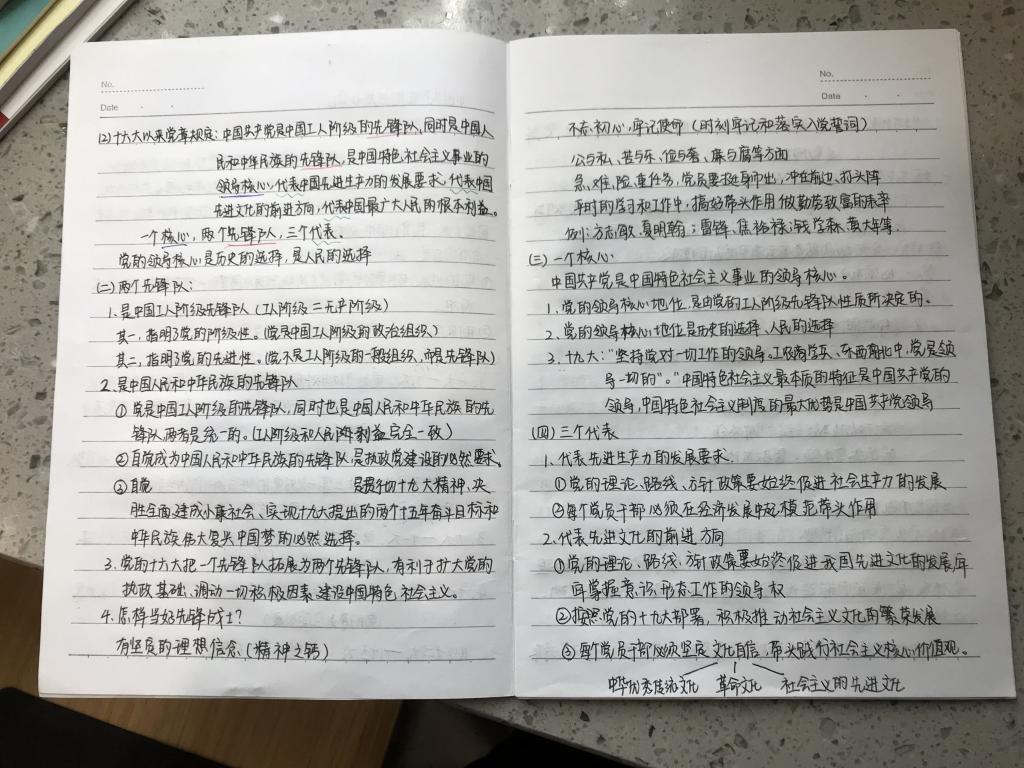 No.
Date
(2)十六大以来党章规定:中国共产党是中国工人阶级的先锋队,同时是中国人
民和中华民族的先锋队,是中国特色社会主义事业的
领导核心,代表中国先进生产力的发展要求,代表中国
先进文化的前进方向,代表中国最广大人民的根本利益。
一个核心,两个先锋队,三个代表.
党的领导核心是历史的选择,是人民的选择
(二)两个先锋队:
1.是中国工人阶级先锋队(工人阶级=无产阶级)
其一,指明了党的阶级性。(党是中国工人阶级的政治组织)
其二,指明了党的先进性。(党不是工人阶级的一般组织,而是先锋队)
2.是中国人民和中华民族的先锋队
①党是中国工人阶级的先锋队,同时也是中国人民和中华民族的先
锋队两者是统一的。(工人阶级和人民阵利益完全一致)
②自觉成为中国人民和中华民族的先锋队是执政党建设的必然要求。
③自觉 是贯彻十九大精神、决
胜全面建成小康社会、实现十九大提出的两个十五年奋斗目标和
中华民族伟大复兴中国梦的必然选择。
3.党的十六大把一个先锋队拓展为两个先锋队,有利于扩大党的
执政基础、调动一切积极因素、建设中国特色社会主义。
4.怎样当好先锋战士?
有坚定的理想信念、(精神之钙)
No.
Date
不忘初心,牢记使命(时刻牢记和落实入党誓词)
公与私、苦与乐、俭与奢、廉与腐等方面
急、难、险、重任务,党员要挺身而出,冲在前边、打头阵
平时的学习和工作中,搞好带头作用做勤劳致富的表率
例:方志敏、夏明翰;雷锋、焦裕禄;钱学森、黄大年等.
(三)一个核心:
中国共产党是中国特色社会主义事业的领导核心。
1.党的领导核心地位,是由党的工人阶级先锋队性质所决定的。
2.党的领导核心地位是历史的选择、人民的选择
3.十九大:"坚持党对一切工作的领导。工农商学兵、东西南北中,党是领
导一切的"。"中国特色社会主义最本质的特征是中国共产党的
领导,中国特色社会主义制度的最大优势是中国共产党领导
(四)三个代表
1.代表先进生产力的发展要求
①党的理论、路线、方针政策要始终促进社会生产力的发展
②每个党员干部必须在经济发展中起模范带头作用
2.代表先进文化的前进方向
①党的理论、路线、方针政策要始终促进我国先进文化的发展牢
牢掌握意识形态工作的领导权
②按照党的十九大部署,积极推动社会主义文化的繁荣发展
③每个党员干部必须坚定文化自信,带头践行社会主义核心价值观。
中华优秀传统文化 革命文化 社会主义的先进文化